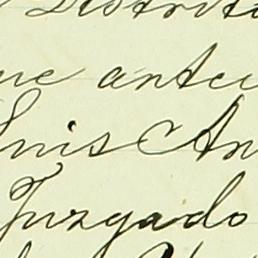 Distrito
ue ante
Luis An
Juzgado